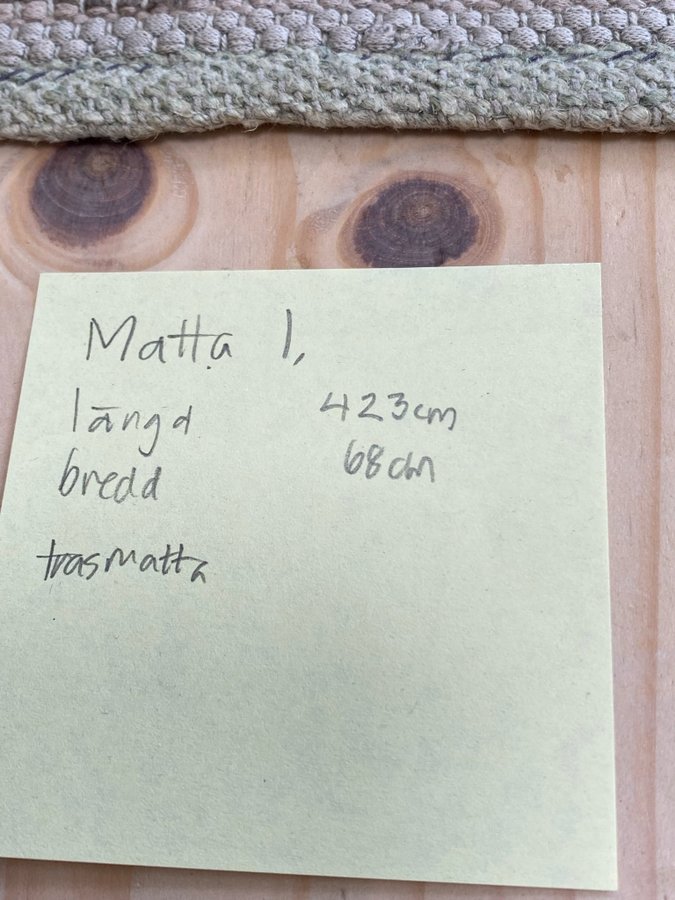 Matta 1,
längd 423cm
bredd 68cm
trasmatta